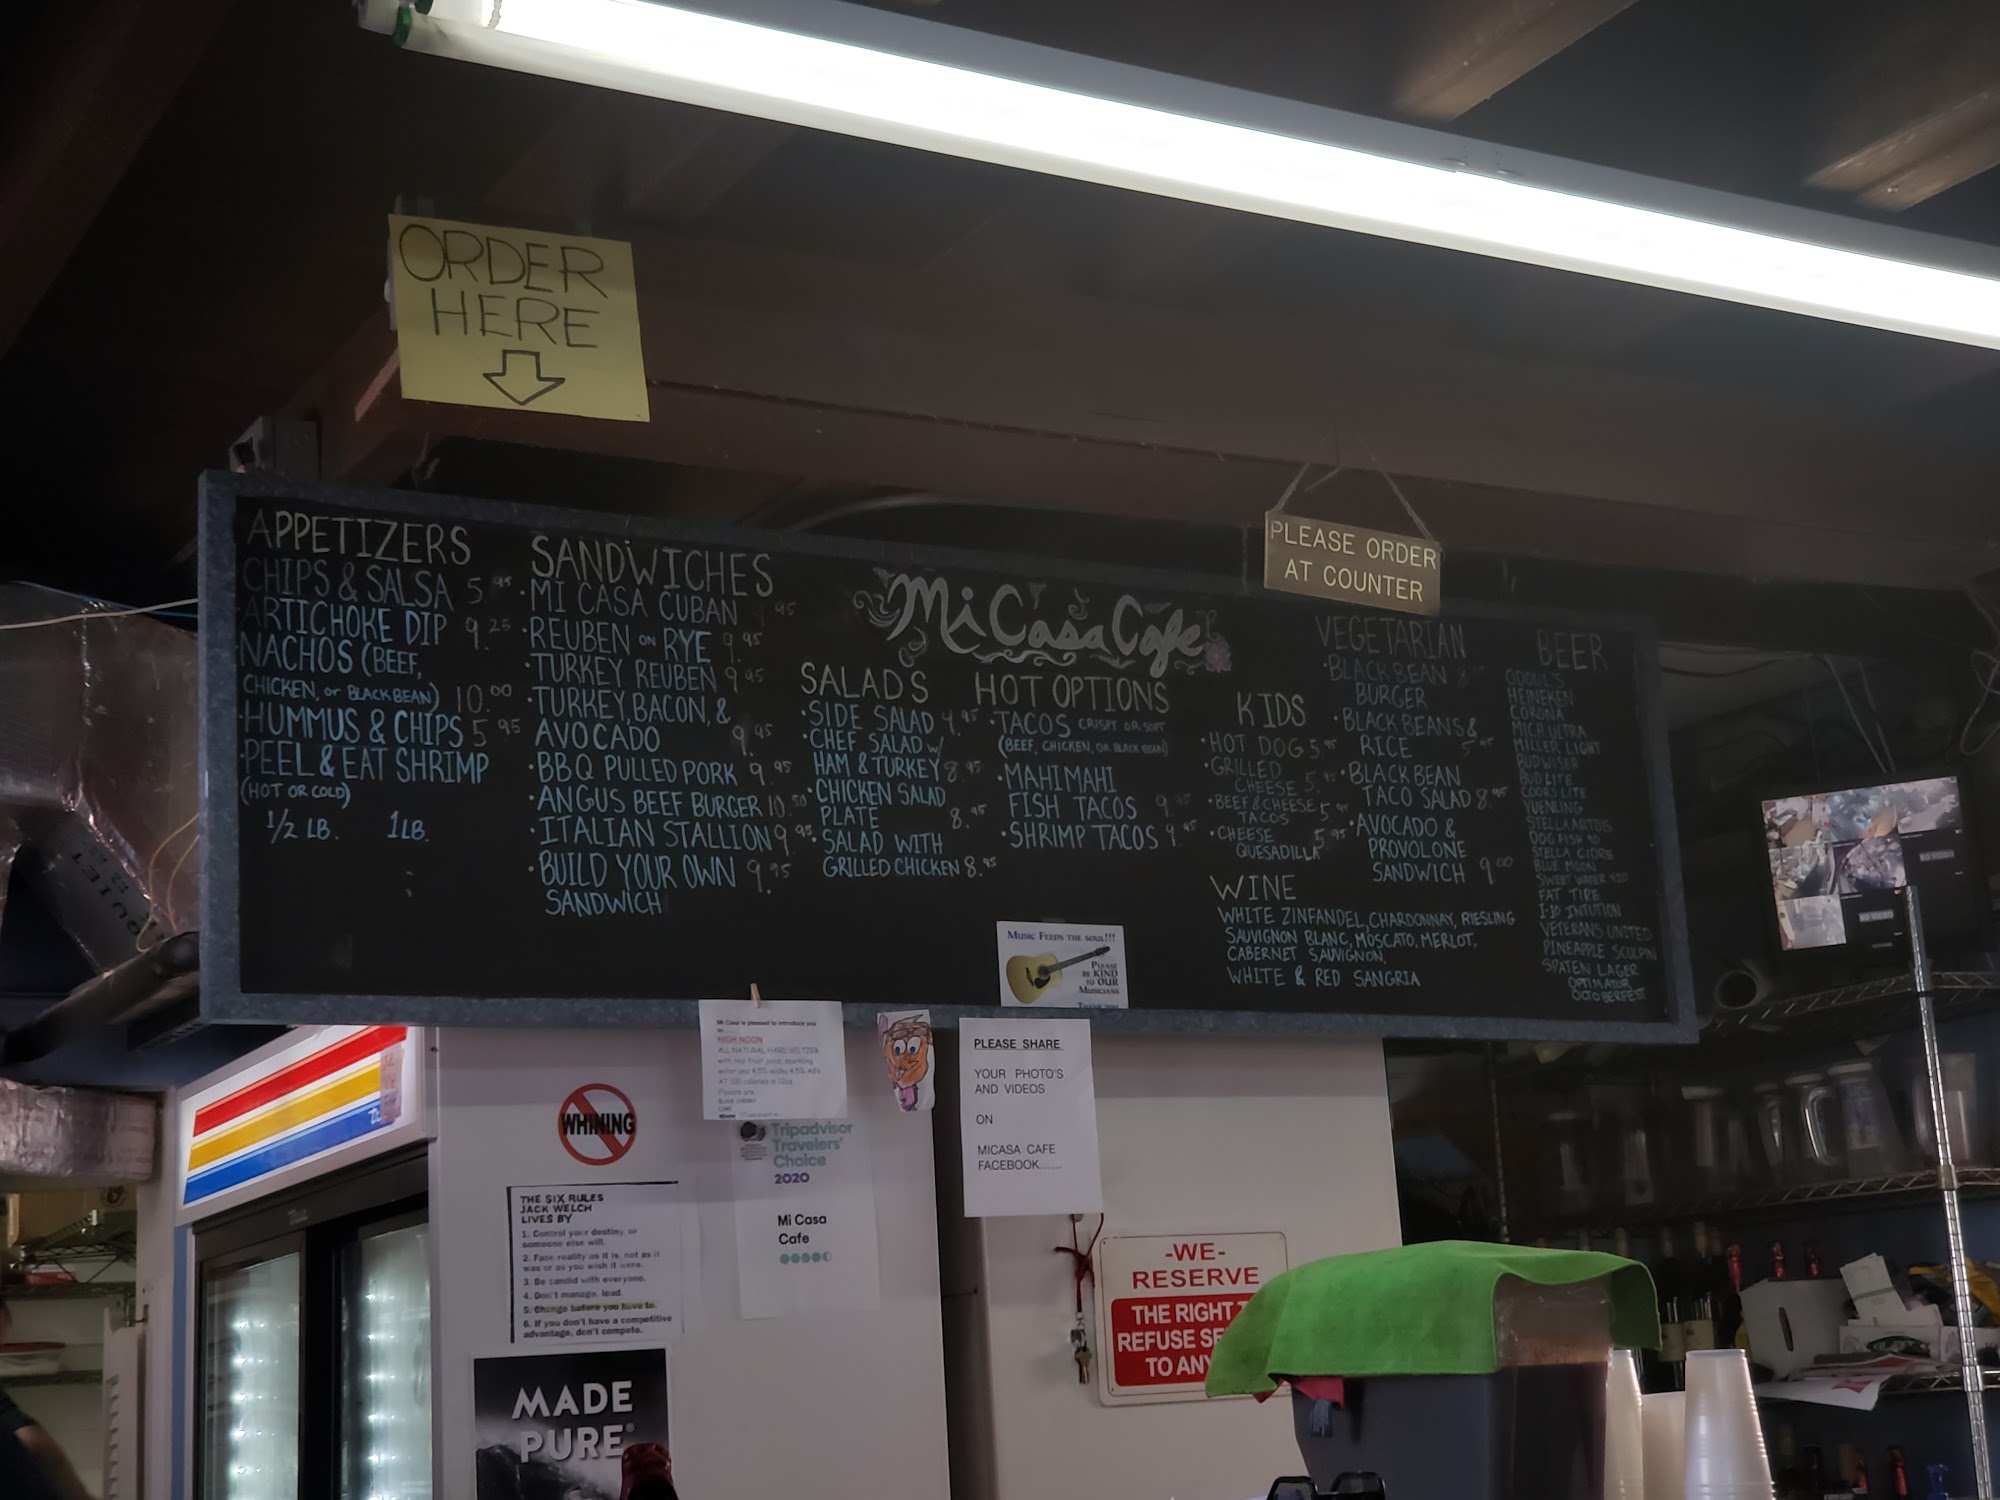 ORDER
HERE
PLEASE ORDER
AT COUNTER
APPETIZERS
CHIPS & SALSA 5.95
ARTICHOKE DIP 9.25
NACHOS (BEEF,
CHICKEN, OR BLACK BEAN) 10.00
HUMMUS & CHIPS 5.95
PEEL & EAT SHRIMP
(HOT OR COLD)
1/2 LB. 1 LB.
SANDWICHES
· MI CASA CUBAN 95
· REUBEN ON RYE 9.95
· TURKEY REUBEN 9.95
· TURKEY, BACON, &
AVOCADO 9.95
· BBQ PULLED PORK 9.95
· ANGUS BEEF BURGER 10.50
· ITALIAN STALLION 9.95
· BUILD YOUR OWN 9.95
SANDWICH
Mi Casa Cafe
SALADS
· SIDE SALAD 4.95
· CHEF SALAD W/
HAM & TURKEY 8.95
· CHICKEN SALAD
PLATE 8.95
· SALAD WITH
GRILLED CHICKEN 8.95
HOT OPTIONS
· TACOS CRISPY OR SOFT
(BEEF, CHICKEN, OR BLACK BEAN)
· MAHI MAHI
FISH TACOS 9.
· SHRIMP TACOS 9.95
KIDS
· HOT DOG 5.95
· GRILLED
CHEESE 5.95
· BEEF & CHEESE 5.95
TACOS
· CHEESE 5.95
QUESADILLA
WINE
WHITE ZINFANDEL, CHARDONNAY, RIESLING
SAUVIGNON BLANC, MOSCATO, MERLOT,
CABERNET SAUVIGNON,
WHITE & RED SANGRIA
VEGETARIAN
· BLACK BEAN 8
BURGER
· BLACK BEANS &
RICE 5.95
· BLACK BEAN
TACO SALAD 8.95
· AVOCADO &
PROVOLONE
SANDWICH 9.00
BEER
ODOUL'S
HEINEKEN
CORONA
MICH ULTRA
MILLER LIGHT
BUDWISER
BUD LITE
COORS LITE
YUENLING
STELLA ARTOIS
DOG FISH 90
STELLA CIDRE
BLUE MOON
SWEET WATER 420
FAT TIRE
I-10 INTUTION
VETERANS UNITED
PINEAPPLE SCULPIN
SPATEN LAGER
OPTIMATOR
OCTOBERFEST
MUSIC FEEDS THE SOUL!!!
PLEASE
BE KIND
TO OUR
MUSICIANS
Mi Casa is pleased to introduce you
HIGH NOON
ALL NATURAL HARD SELTZER
PLEASE SHARE
YOUR PHOTO'S
AND VIDEOS
ON
MICASA CAFE
FACEBOOK......
WHINING
Tripadvisor
Travelers'
Choice
2020
Mi Casa
Cafe
THE SIX RULES
JACK WELCH
LIVES BY
1. Control your destiny, or
someone else will.
2. Face reality as it is, not as it
was or as you wish it were.
3. Be candid with everyone.
4. Don't manage, lead.
5. Change before you have to.
6. If you don't have a competitive
advantage, don't compete.
MADE
PURE®
-WE-
RESERVE
THE RIGHT T
REFUSE SE
TO ANY